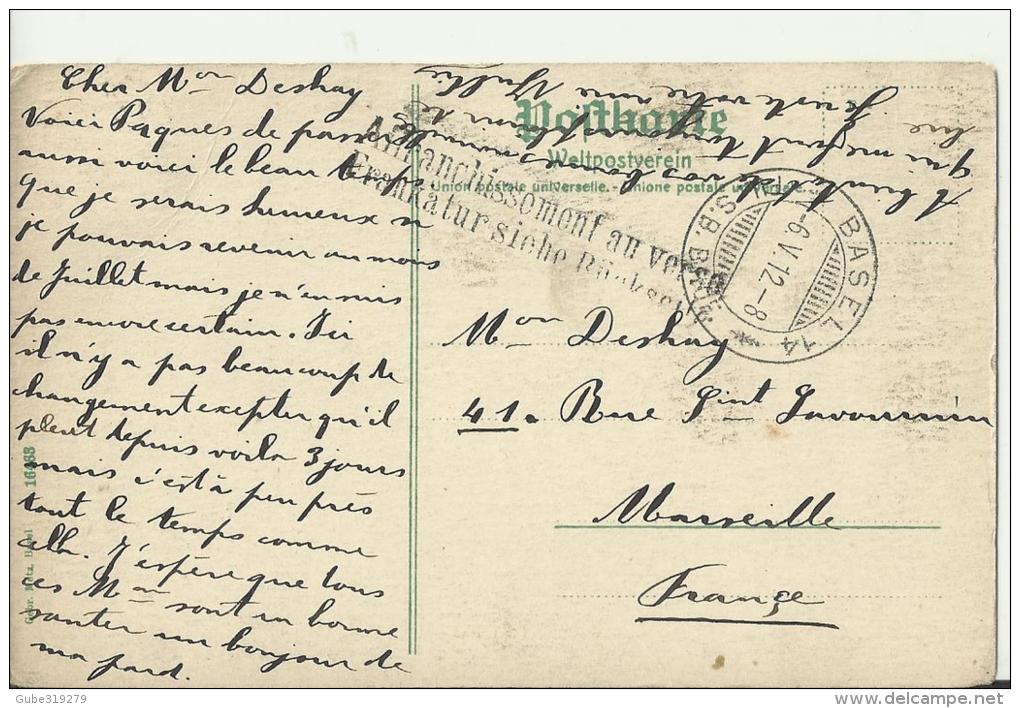 Cher Mon Deshay
Voici Pâques de passer
aussi voici le beau temps
que je serais heureux si
je pouvais revenir au mois
de Juillet mais je n'en suis
pas encore certain. Ici
il n'y a pas beaucoup de
changement excepter qu'il
pleut depuis voila 3 jours
mais c'est à peu près
tout le temps comme
cela. J'espère que tous
ces Mon sont en bonne
santer un bonjour de
ma pard.
A bientôt de vos bonnes nouvelles
qui me font toujours plaisir de
lire
Je suis votre ami
Postkarte
Weltpostverein
Union postale universelle. - Unione postale universale.
Affranchissement au verso
Frankatur siehe Rückseite
BASEL 14
S.B. BHF.
-6.V.12-8
Mon Deshay
41. Rue Saint Savournin
Marseille
France
Gebr. Metz, Basel 16468
Gube319279
www.delcampe.net